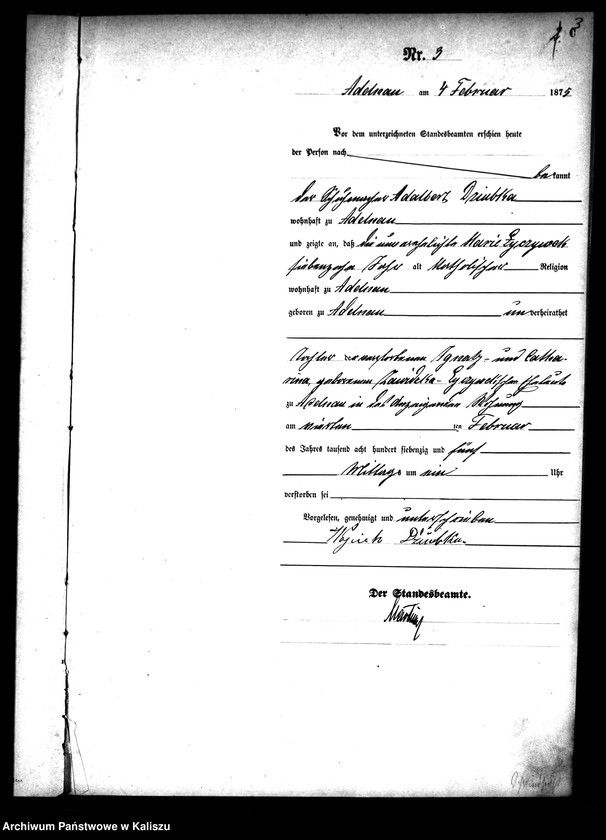 3
Nr. 3
Adelnau am 4 Februar 1875
Vor dem unterzeichneten Standesbeamten erschien heute
der Person nach
be kannt
der Schuhmacher Adalbert Dziubka
wohnhaft zu Adelnau
und zeigte an, daß die unverehelichte Marie
siebenzehn Jahr alt katholischer Religion
wohnhaft zu Adelnau
geboren zu Adelnau un verheirathet
Tochter der verstorbenen Ignatz- und Catha-
rina, geborenen Eheleute
zu Adelnau in des Anzeigenden Wohnung
am vierten ten Februar
des Jahres tausend acht hundert siebenzig und fünf
Mittags um ein Uhr
verstorben sei
Vorgelesen, genehmigt und unterschrieben
Dziubka
Der Standesbeamte.
Archiwum Państwowe w Kaliszu